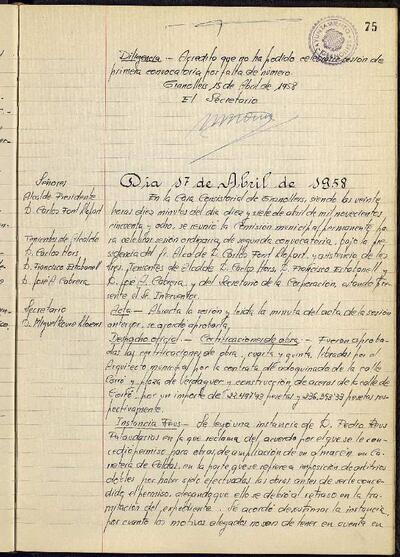 75
AYUNTAMIENTO
Diligencia.- Acredito que no ha podido celebrarse sesión de
primera convocatoria por falta de número.
Granollers 15 de Abril de 1958
El Secretario
Día 17 de Abril de 1958
Señores
Alcalde Presidente
D. Carlos Font Llopart
Tenientes de Alcalde
D. Carlos Hors
D. Francisco Estabanell
D. José A. Cabrera
Secretario
D. Miguel
En la Casa Consistorial de Granollers, siendo las veinte
horas diez minutos del día diez y siete de abril de mil novecientos
cincuenta y ocho, se reunió la Comisión municipal permanente pa
ra celebrar sesión ordinaria, de segunda convocatoria, bajo la pre
sidencia del Sr. Alcalde D. Carlos Font Llopart, y asistencia de los
Sres. Tenientes de Alcalde D. Carlos Hors, D. Francisco Estabanell y
D. José A. Cabrera, y del Secretario de la Corporación, estando presente
el Sr. Interventor.
Acta.- Abierta la sesión y leída la minuta del acta de la sesión
anterior, se acordó aprobarla.
Despacho oficial.- Certificaciones de obra.- Fueron aproba
das las certificaciones de obra, cuarta y quinta, libradas por el
Arquitecto municipal por la contrata de adoquinado de la calle
Corró y plaza de Verdaguer y construcción de aceras de la calle de
Corró, por un importe de 22.487'43 pesetas y 236.358'33 pesetas res
pectivamente.
Instancia Reus.- Se leyó una instancia de D. Pedro Reus
Palaudarios en la que reclama del acuerdo por el que se le con
cedió permiso para obras de ampliación de un almacén en
Carretera de Caldas, en la parte que se refiere a imposición de arbitrios
dobles por haber sido efectuadas las obras antes de serle conce
dido el permiso, alegando que ello se debió al retraso en la tra
mitación del expediente. Se acordó desestimar la instancia,
por cuanto los motivos alegados no son de tener en cuenta en